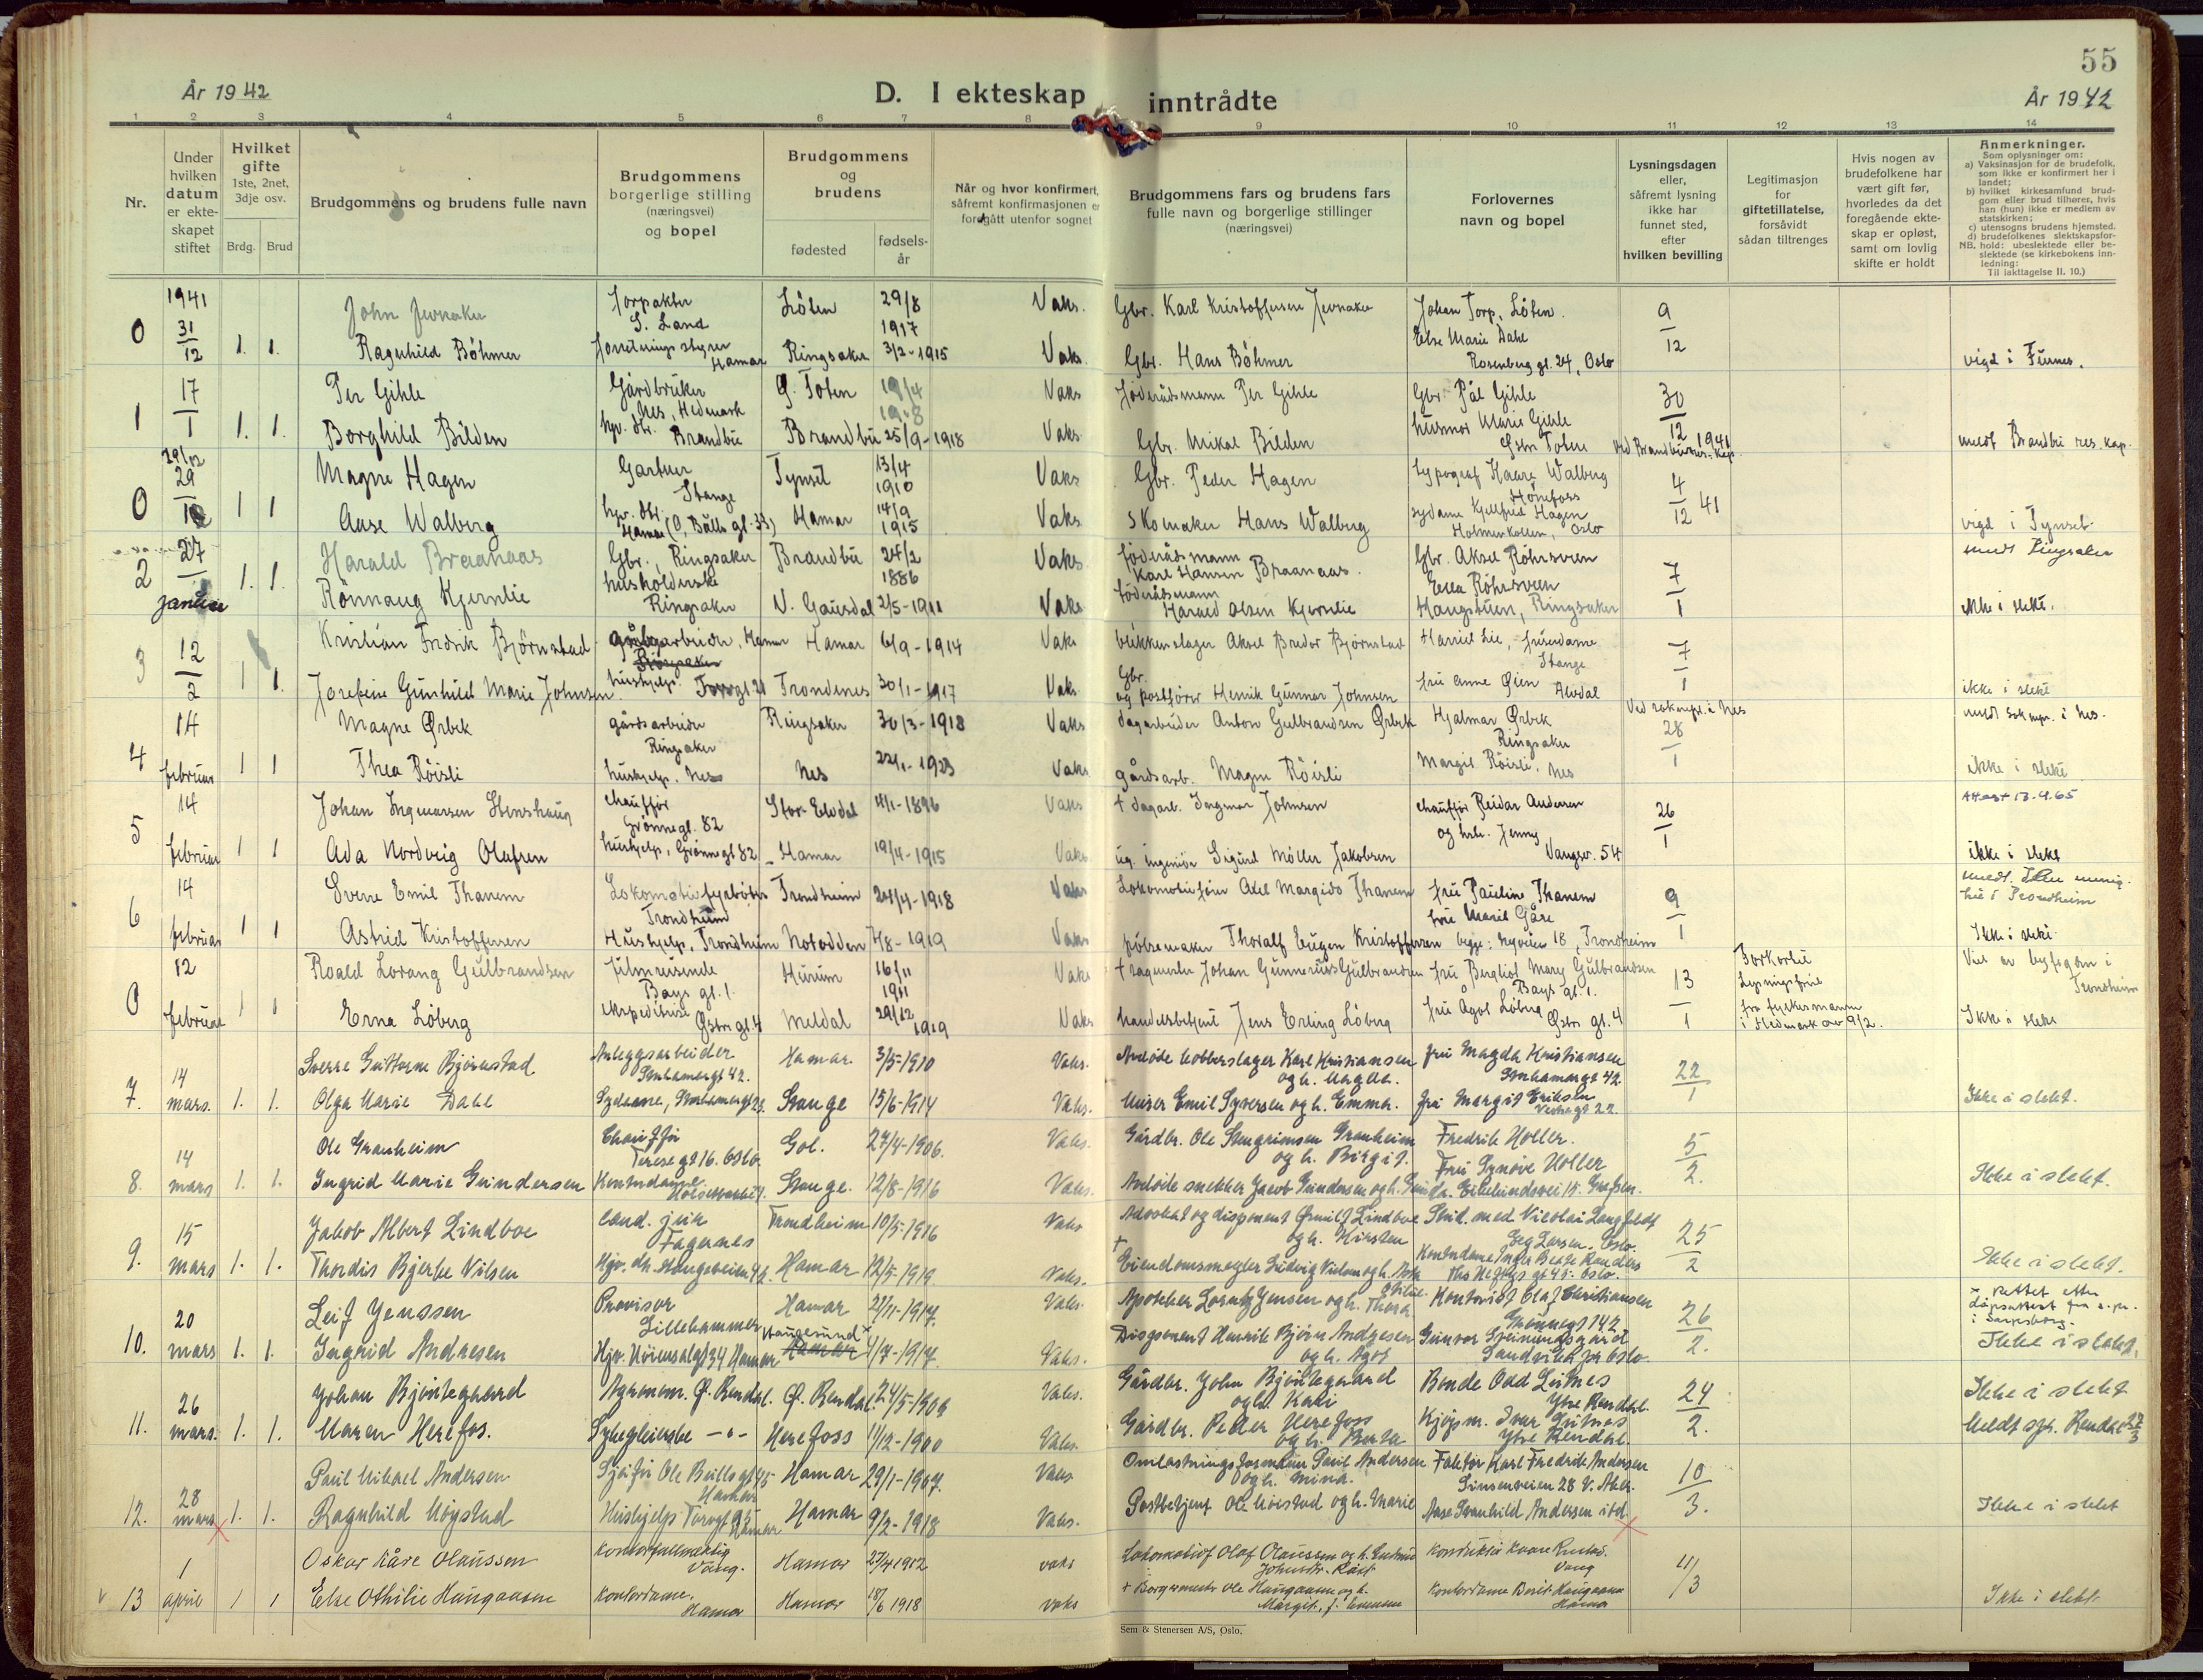 55
År 1942
D. I ekteskap inntrådte
År 1942
1 2 3 4 5 6 7 8 9 10 11 12 13 14
Nr.
Under
hvilken
datum
er ekte-
skapet
stiftet
Hvilket
gifte
1ste, 2net,
3dje osv.
Brdg.
Brud
Brudgommens og brudens fulle navn
Brudgommens
borgerlige stilling
(næringsvei)
og bopel
Brudgommens
og
brudens
fødested
fødsels-
år
Når og hvor konfirmert,
såfremt konfirmasjonen er
foregått utenfor sognet
Brudgommens fars og brudens fars
fulle navn og borgerlige stillinger
(næringsvei)
Forlovernes
navn og bopel
Lysningsdagen
eller,
såfremt lysning
ikke har
funnet sted,
efter
hvilken bevilling
Legitimasjon
for
giftetillatelse,
forsåvidt
sådan tiltrenges
Hvis nogen av
brudefolkene har
vært gift før,
hvorledes da det
foregående ekte-
skap er opløst,
samt om lovlig
skifte er holdt
Anmerkninger.
Som oplysninger om:
a) Vaksinasjon for de brudefolk,
som ikke er konfirmert her i
landet;
b) hvilket kirkesamfund brud-
gom eller brud tilhører, hvis
han (hun) ikke er medlem av
statskirken;
c) utensogns brudens hjemsted.
d) brudefolkenes slektskapsfor-
NB. hold: ubeslektede eller be-
slektede (se kirkebokens inn-
ledning:
Til iakttagelse II. 10.)
0 1941 31/12 1. 1.
John Jevnaker
forpakter
S. Land
Löten
29/8
1917
Vaks.
Gbr. Karl Kristoffersen Jevnaker
Johan Torp, Löten.
9/12
Ragnhild Böhmer
forretnings styrer
Hamar
Ringsaker
3/2-1915
Vaks
Gbr. Hans Böhmer
Else Marie Dahl
Rosenborg gl. 24, Oslo
vigd i Furnes.
1 17/1 1. 1.
Per Gihle
Gårdbruker
Nes, Hedmark
Ö. Toten
19/4
1908
Vaks
Föderådsmann Per Gihle
Gbr. Pål Gihle
30/12 1941
Borghild Bilden
hgv. dtr. Brandbu
Brandbu
25/9-1918
Vaks
Gbr. Mikal Bilden
husmor Marie Gihle
Östre Toten
meldt Brandbu res. kap.
0 29/12
Magne Hagen
Gartner
Stange
Tynset
13/4
1910
Vaks
Gbr. Peder Hagen
typograf Kaare Walberg
Hönefoss
4/12 41
1 1
Aase Walberg
Hamar (O. Bulls gl. 33)
Hamar
14/9
1915
Vaks
Skomaker Hans Walberg
sydame Kjellfrid Hagen
Holmenkollen, Oslo
vigd i Tynset
2 27/januar 1. 1.
Harald Braanaas
Gbr., Ringsaker
Brandbu
24/2
1886
Vaks
föderådsmann
Karl Hansen Braanaas.
Gbr. Aksel Röhrsveen
7/1
meldt Ringsaker
Rönnaug Kjernlie
husholderske
Ringsaker
N. Gausdal
2/5-1911
Vaks
föderådsmann
Harald Olsen Kjernlie
Ella Röhrsveen
Haugstuen, Ringsaker
ikke i slekt.
3 12/2 1 1.
Kristian Fredrik Björnstad
arbeider, Hamar
Hamar
6/9-1914
Vaks
blikkenslager Aksel Bredor Björnstad
Harriet Lie, friserdame
Stange
7/1
Josefine Gunhild Marie Johnsen
hushjelp. Torvgl. 21
Trondenes
30/1-1917
Vaks
Gbr.
og postförer Henrik Gunnar Johnsen
fru Anne Öien Alvdal
ikke i slekt
4 14 februar 1 1
Magne Ørbek
gårdsarbeider
Ringsaker
Ringsaker
30/3-1918
Vaks
dagarbeider Anton Gulbrandsen Ørbek
Hjalmar Ørbek
Ringsaker
28/1
meldt soknepr. i Nes.
Thea Röisli
hushjelp. Nes
Nes
22/1-1923
Vaks
gårdsarb. Magnus Röisli
Margit Röisli, Nes
ikke i slekt
5 14 februar 1 1
Johan Ingemarsen Stenshaug
chauffør
Grönnegl. 82
Stor-Elvdal
4/1-1896
Vaks
+ dagarb. Ingmar Johnsen
chauffør Reidar Andersen
26/1
Attest 13.4.65
Ada Nordvig Olafsen
hushjelp, Grönnegl 82
Hamar
19/4-1915
Vaks
ug. ingeniør Sigurd Möller Jakobsen
og hstr. Jenny
Vangsv. 54
ikke i slekt
6 14 februar 1 1
Sverre Emil Thanem
Lokomotivfyrböter
Trondheim
Trondheim
24/4-1918
Vaks
Lokomotivfører Axel Margido Thanem
fru Pauline Thanem
9/1
Astrid Kristoffersen
Hushjelp, Trondheim
Notodden
7/8-1919
Vaks
pölsemaker Thoralf Eugen Kristoffersen
fru Marit Gåre
begge: Nyveien 18, Trondheim
Ikke i slekt
0 12 februar 1 1
Roald Lorang Gulbrandsen
filmreisende
Bays gl. 1.
Hurum
16/11
1911
Vaks
+ sagmester Johan Gunnerius Gulbrandsen
fru Bergliot Mary Gulbrandsen
Bays gl. 1.
13/1
Forkortet
Lysningsfrist
fra fylkesmannen
i Hedmark av 9/2.
Viet av byfogden i
Trondheim
Erna Löberg
ekspeditrise
Østre gl. 4
Meldal
29/12
1919
Vaks
handelsbetjent Jens Erling Löberg
fru Ågot Löberg
Østre gl. 4
Ikke i slekt
7. 14 mars. 1. 1.
Sverre Guttorm Björnstad
Anleggsarbeider
Storhamargt 42.
Hamar.
3/5-1910
Vaks.
Avdöde kobberslager Karl Kristiansen
og h. Magda.
fru Magda Kristiansen
Storhamargt 42.
22/1
Olga Marie Dahl
Sydame, Storhamargt 23.
Stange
15/6-1914
Vaks.
Murer Emil Syversen og h. Emma.
fru Margit Eriksen
Vestregt 22.
Ikke i slekt.
8. 14 mars 1. 1.
Ole Granheim
Chauffør
Terese gt 16. Oslo.
Gol.
27/4-1906.
Vaks.
Gårdbr. Ole Stengrimsen Granheim
og h. Birgit.
Fredrik Holler.
Fru Synöve Holler
5/2.
Ingrid Marie Gundersen
Kontordame
Stange.
12/8-1916
Vaks.
Avdöde snekker Jacob Gundersen og h.
Eikelundsvei 15. Grefsen.
Ikke i slekt.
9. 15 mars 1. 1.
Jakob Albert Lindboe
cand. jur.
Fagernes
Trondheim
10/5-1916
Vaks
Advokat og disponent Ørnulf Lindboe
og h. Kirsten
Stud. med Nicolai Langfeldt
Seg Larsen. Oslo.
25/2
Thordis Bjerke Nilsen
Hjv. dtr. Stangeveien
Hamar
12/5-1919
Vaks.
+ Eiendomsmegler Ludvig Nielsen og h.
Ths Heftyes gt 45. Oslo.
Ikke i slekt.
10. 20 mars 1. 1.
Leif Jenssen
Provisor
Lillehammer
Hamar
21/11-1917.
Vaks.
Apotheker Lorentz Jensen og h. Thora
Kontorist Olaf Christiansen
Grønnegt 142
26/2.
x rettet etter
dåpsattest fra s.pr.
i Sarpsborg.
Ingrid Andresen
Hjv. Norensalgt 34 Hamar
Haugesund x
Hamar
1/7-1917.
Vaks.
Disponent Henrik Bjørn Andresen
og h. Agot
Gunvor Steinungsgård
Sandvika pr Oslo.
Ikke i slekt.
11. 26 mars. 1. 1.
Johan Bjöntegaard
Agronom. Ø. Rendal.
Ø. Rendal.
24/5-1904
Vaks.
Gårdbr. John Bjöntegaard
og h. Kari
Bonde Odd Leitnes
Ytre Rendal.
24/2.
Ikke i slekt
Maren Herefos.
Sykepleierske -"-
Herefoss
11/12-1900
Vaks.
Gårdbr. Peder Herefoss
og h. Berta
Kjøpm. Ivar Leitnes
Ytre Rendal.
Meldt spr. Rendal 27/3
12. 28 mars 1. 1.
Paul Mikael Andersen
Sjåfør Ole Bullsgt 45
Hamar
Hamar
29/1-1907.
Vaks
Omlastningsformann Paul Andersen
og h. Mina.
Faktor Karl Fredrik Andersen
Sinsenveien 28 V. Aker.
10/3.
Ragnhild Mögstad
Hushjelp Torvgt 95
Hamar
Hamar
9/2-1918
Vaks.
Postbetjent Ole Moistad og h. Marie
Aase Svanhild Andersen ibd.
Ikke i slekt
13 1 april 1 1
Oskar Kåre Olaussen
Kontorfullmektig
Vang.
Hamar
27/4 1912
vaks
Lokomotivf Olaf Olaussen og h. Gudrun
Konduktør Kaare Rustad.
Vang
11/3
Else Othilie Haugaasen
Kontordame,
Hamar
Hamar
18/6 1918
vaks
+ Borgermester Ole Haugaasen og h.
Margit, f. Evensen
Kontordame Berit Haugaasen
Hamar
Ikke i slekt
Sem & Stenersen A/S, Oslo.